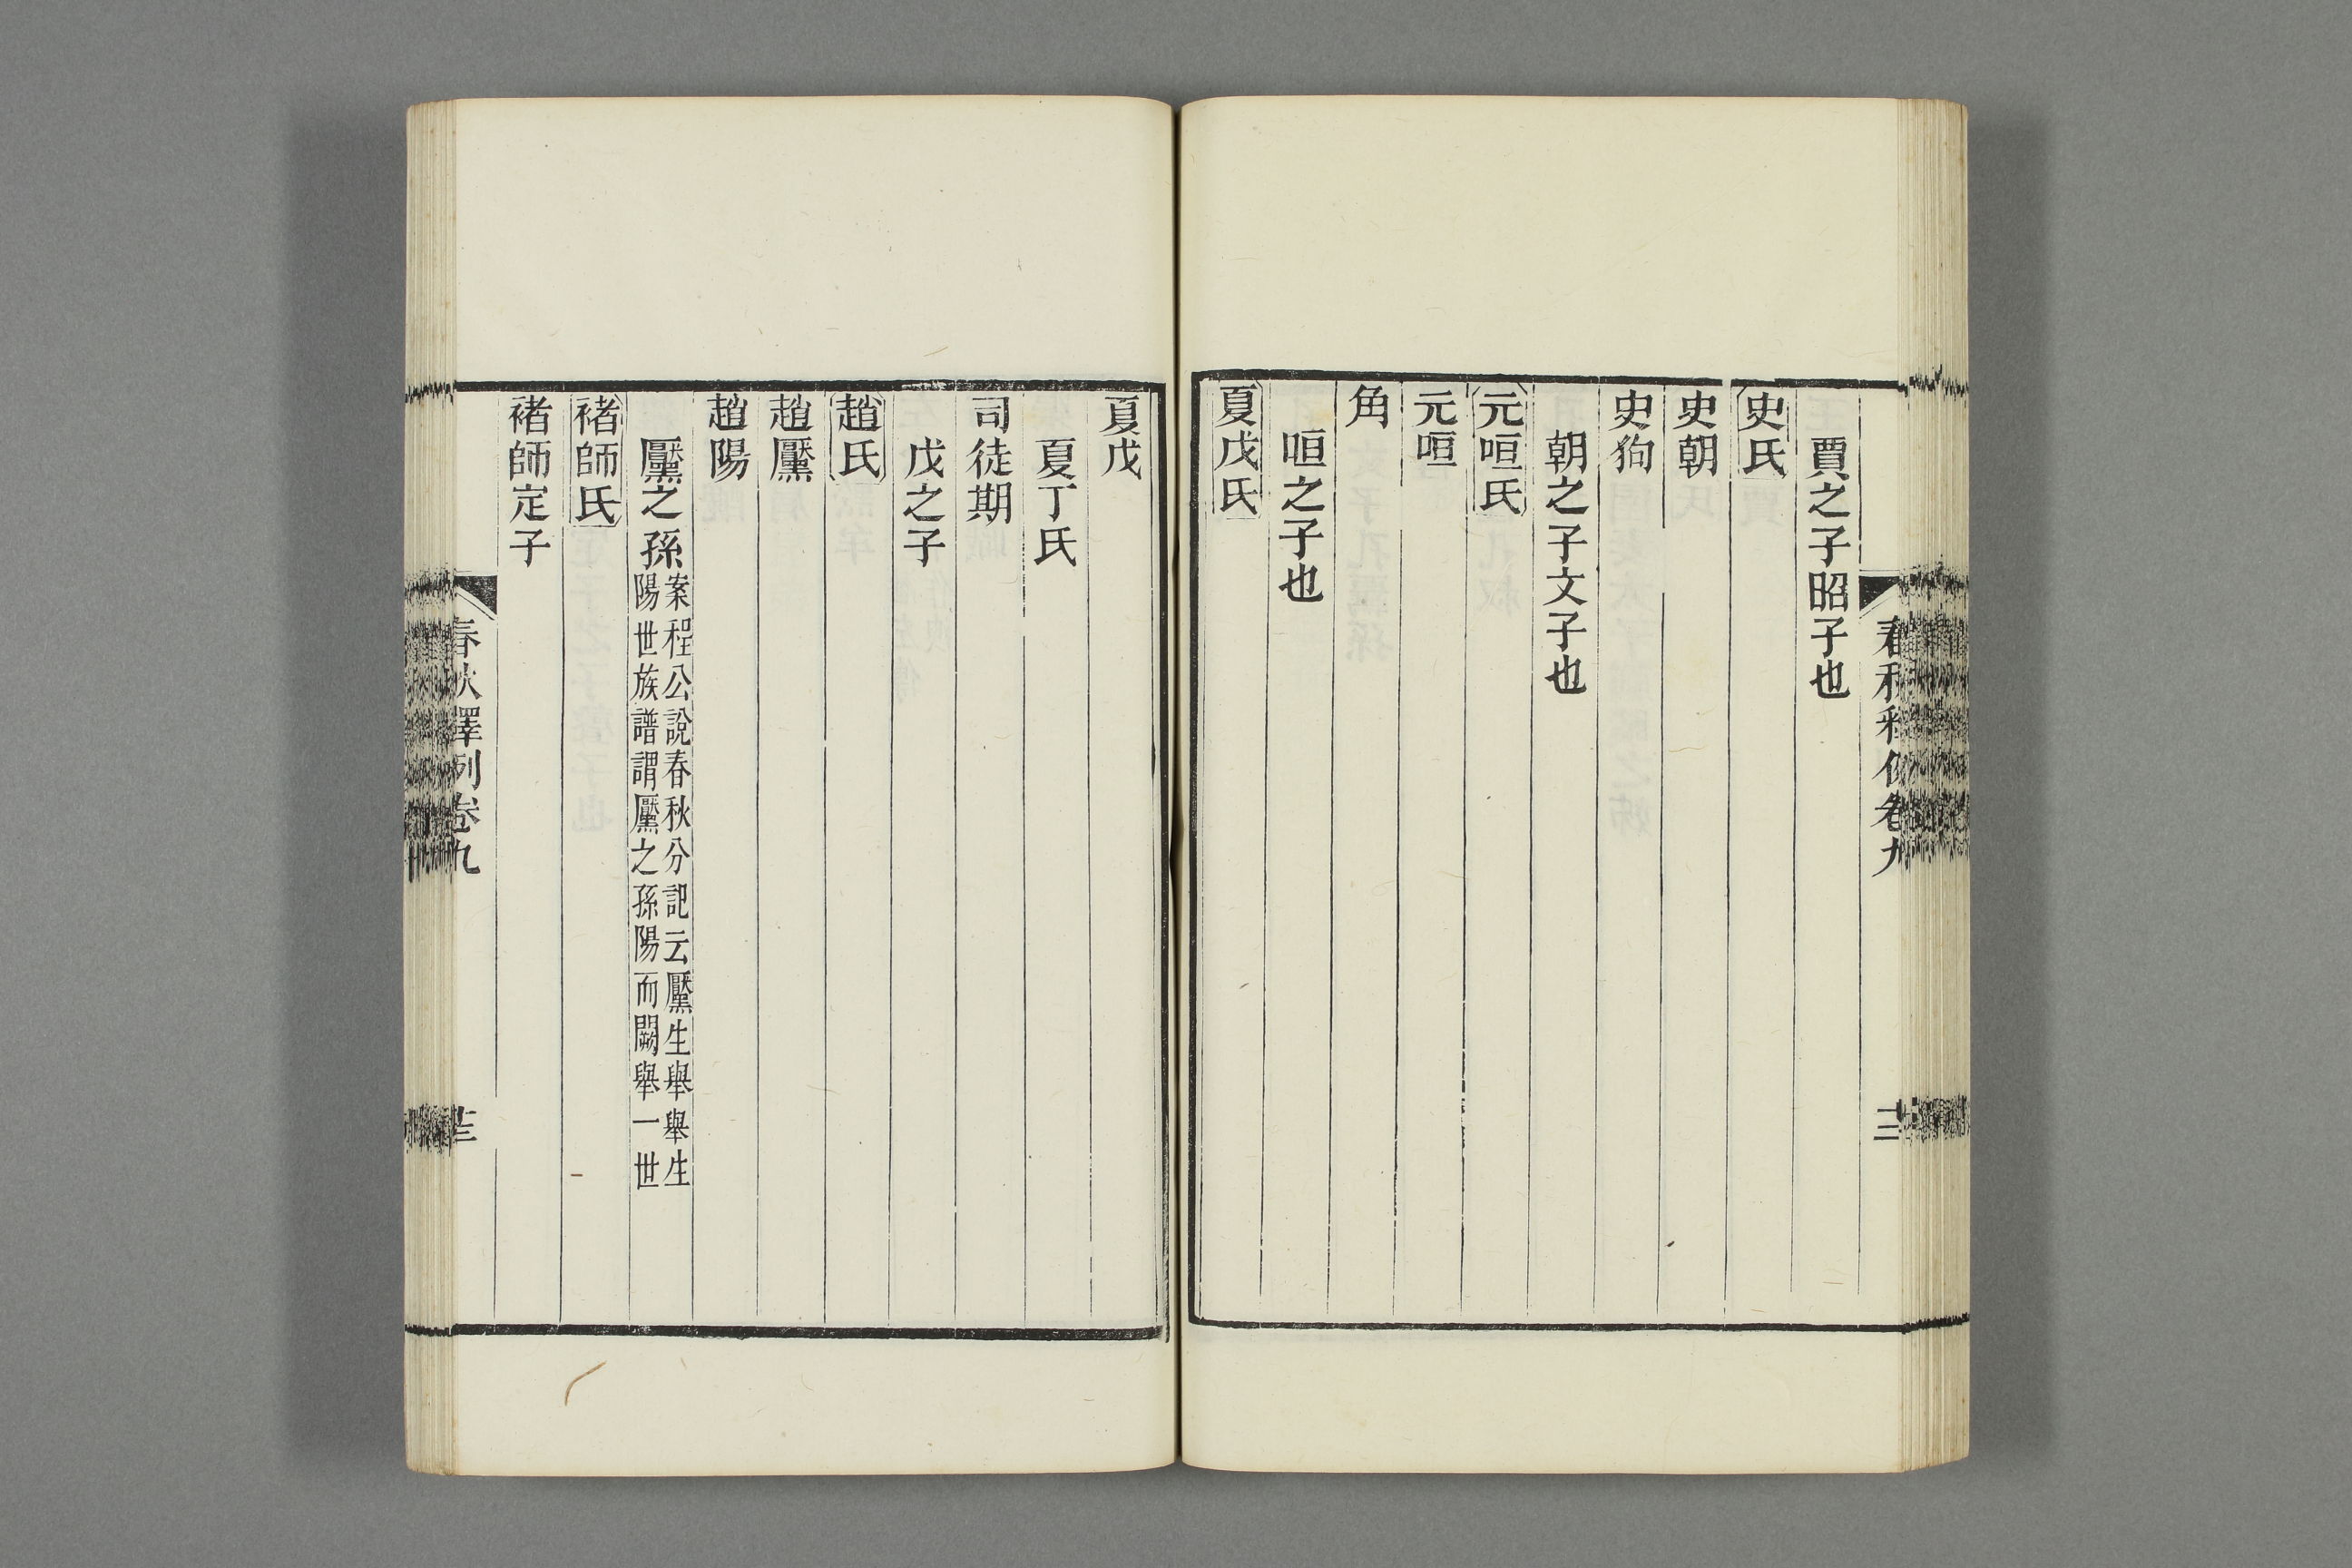 賈之子昭子也
史氏
史朝
史狗
朝之子文子也
元咺氏
元咺
角
咺之子也
夏戊氏
夏戊
夏丁氏
司徒期
戊之子
趙氏
趙黶
趙陽
黶之孫
案程公說春秋分記云黶生舉舉生
陽世族譜謂黶之孫陽而闕舉一世
褚師氏
褚師定子
春秋釋例卷九